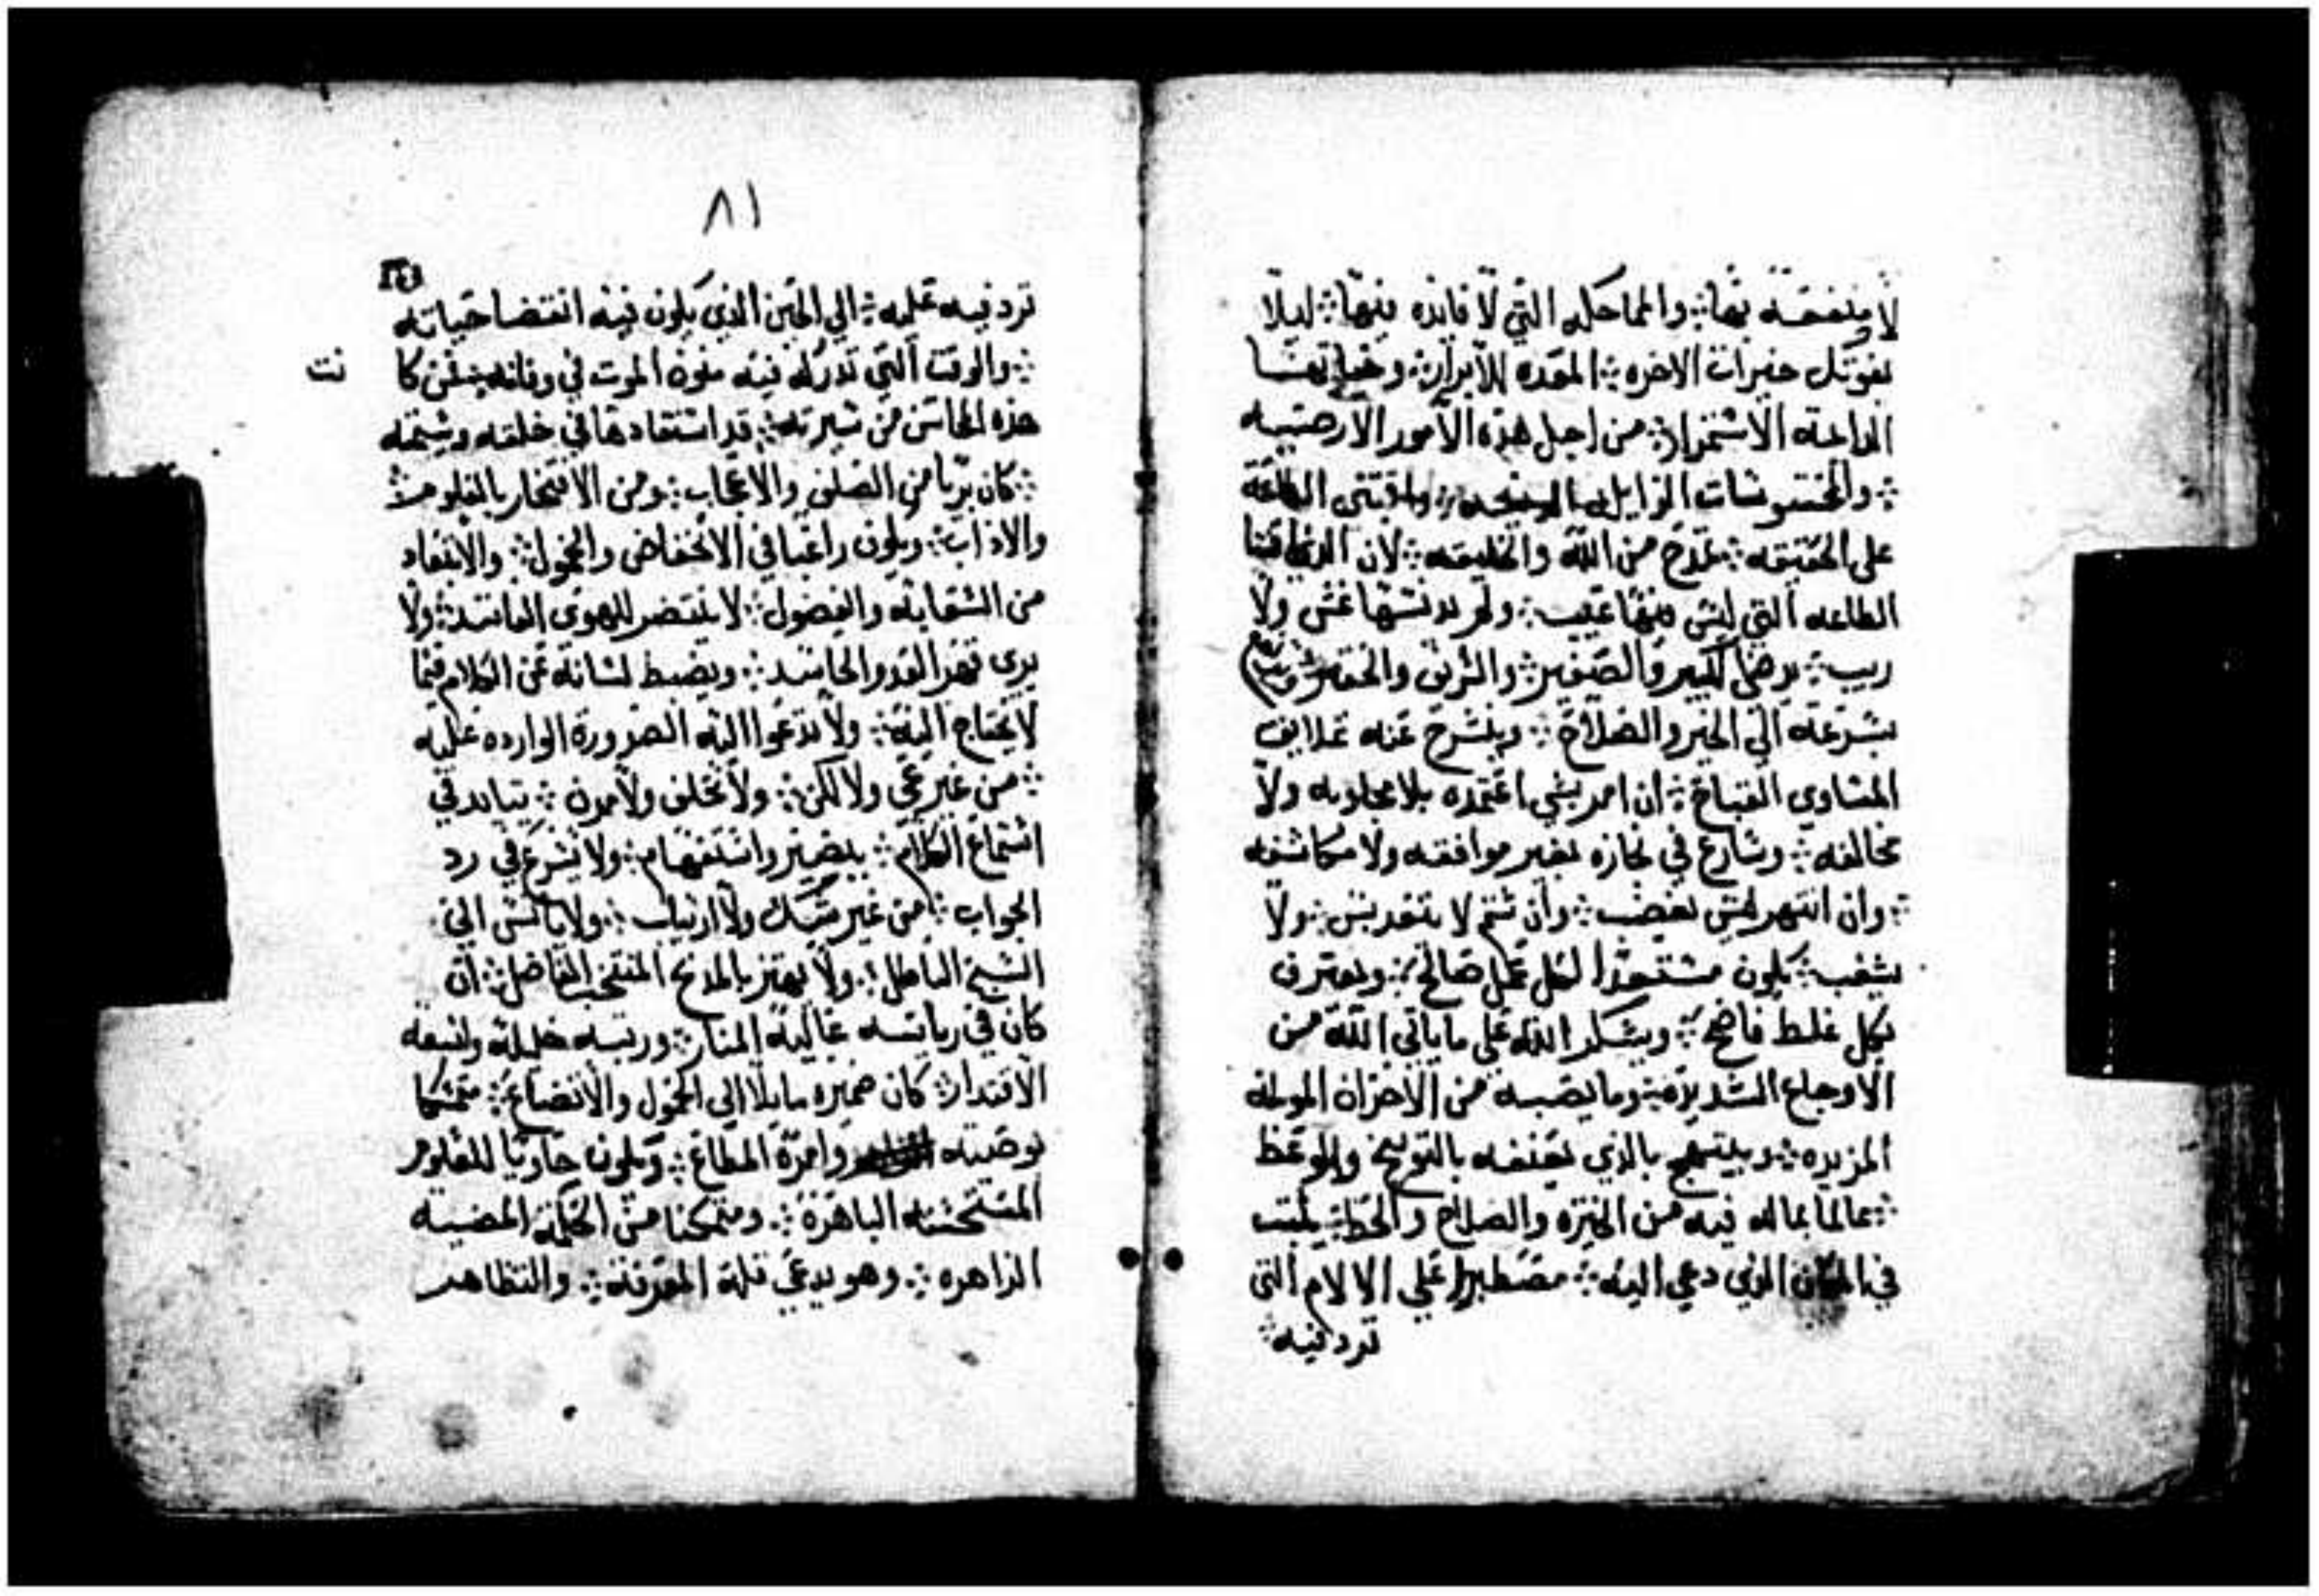 لا منفعة بها ؞ والمماحكه التي لا فايده فيها ؞ ليلا
يفوتك خيرات الاخره ؞ المعده للأبرار ؞
الاستمرار ؞ من اجل هذه الأمور الارضيه
؞ الزايله
على الحقيقه ؞ من الله والخليقه ؞ لان
الطاعه التي ليس فيها عيب ؞ ولم يدنسها غش ولا
ريب ؞ يرضي الكبير والصغير ؞ والحقير ؞
بسرعة الي الخير والصلاح ؞ عنه علايق
المساوي القباح ؞ ان امر بشي اعتمده بلا ولا
مخالفه ؞ وسارع في نجازه بغير موافقه ولا مكاشفه
؞ وان انتهر ليس يغضب ؞ وان شتم لا ولا
يشغب ؞ يكون لكل عمل صالح ؞ ويعترف
بكل غلط فاضح ؞ ويشكر الله علي ما ياتي الله من
الاوجاع الشديده ؞ وما يصيبه من الاحزان المولمه
؞ ويبتهج بالذي يعنفه بالتوبيخ والوعظ
؞ عالما بما له فيه من الخيره والصلاح والحظ ؞ يلبث
في المكان الذي دعي اليه ؞ مصطبرا علي الالام التي
ترد فيه ؞
٨١
ترد فيه عليه ؞ الي الحين الذي يكون فيه انقضا حياته
؞ والوقت التي تدركه فيه الموت في وفاته ؞ فمن كا نت
هذه المحاسن من سيرته ؞ قد استفادها في خلقه وشيمته
؞ كان بريا من الصلف والاعجاب ؞ ومن الافتخار بالعلوم ؞
والاداب ؞ ويكون راغبا في الانخفاض والخمول ؞ والابتعاد
من الشقايه والفضول ؞ لا ينتصر للهوي الفاسد ؞ ولا
يري قهر العدو الحاسد ؞ ويضبط لسانه عن الكلام فيما
لا يحتاج اليه ؞ ولا تدعوا اليه الضروره الوارده عليه
؞ من غير عي ولا لكن ؞ ولا تخلف ولا ؞ في
استماع الكلام ؞ واستفهام ؞ ولا يسرع في رد
الجواب ؞ من غير شك ولا ارتياب ؞ ولا يانس الي
الباطل ؞ ولا يهتز بالمدح المنتخب الفاضل ؞ ان
كان في رياسه عاليه المنار ؞ ورتبه جليله واسعه
الاقتدار ؞ كان ضميره مايلا الي الخمول والاتضاع ؞ متمسكا
بوصيته وامره المطاع ؞ ويكون حاويا للعلوم
المستحسنه الباهره ؞ ومتمكنا من الحكمه المضيه
الزاهره ؞ وهو يدعي قلة المعرفه ؞ والتظاهر